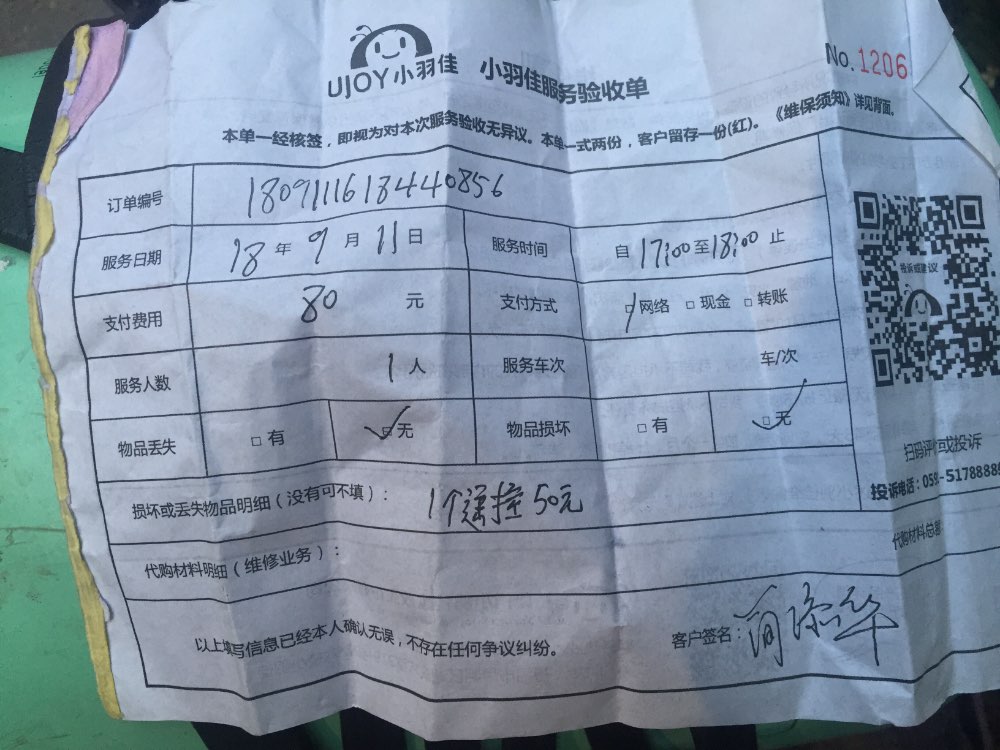 UJOY小羽佳 小羽佳服务验收单
No. 1206
本单一经核签，即视为对本次服务验收无异议。本单一式两份，客户留存一份(红)。《维保须知》详见背面。
订单编号 180911161844 0856
服务日期 18 年 9 月 11 日 服务时间 自 17:00 至 18:00 止
支付费用 80 元 支付方式 □ 网络 □ 现金 □ 转账
投诉或建议
服务人数 1 人 服务车次 车/次
物品丢失 □ 有 □ 无 物品损坏 □ 有 □ 无
扫码评价或投诉
投诉电话：059-5178888
损坏或丢失物品明细（没有可不填）： 1个遥控 50元
代购材料
代购材料明细（维修业务）：
以上填写信息已经本人确认无误，不存在任何争议纠纷。
客户签名：